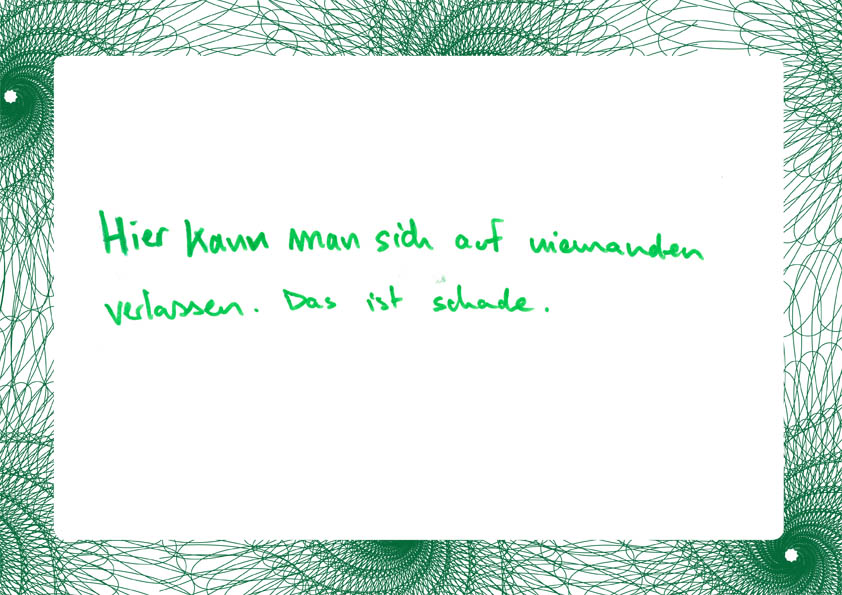 Hier kann man sich auf niemanden
verlassen. Das ist schade.